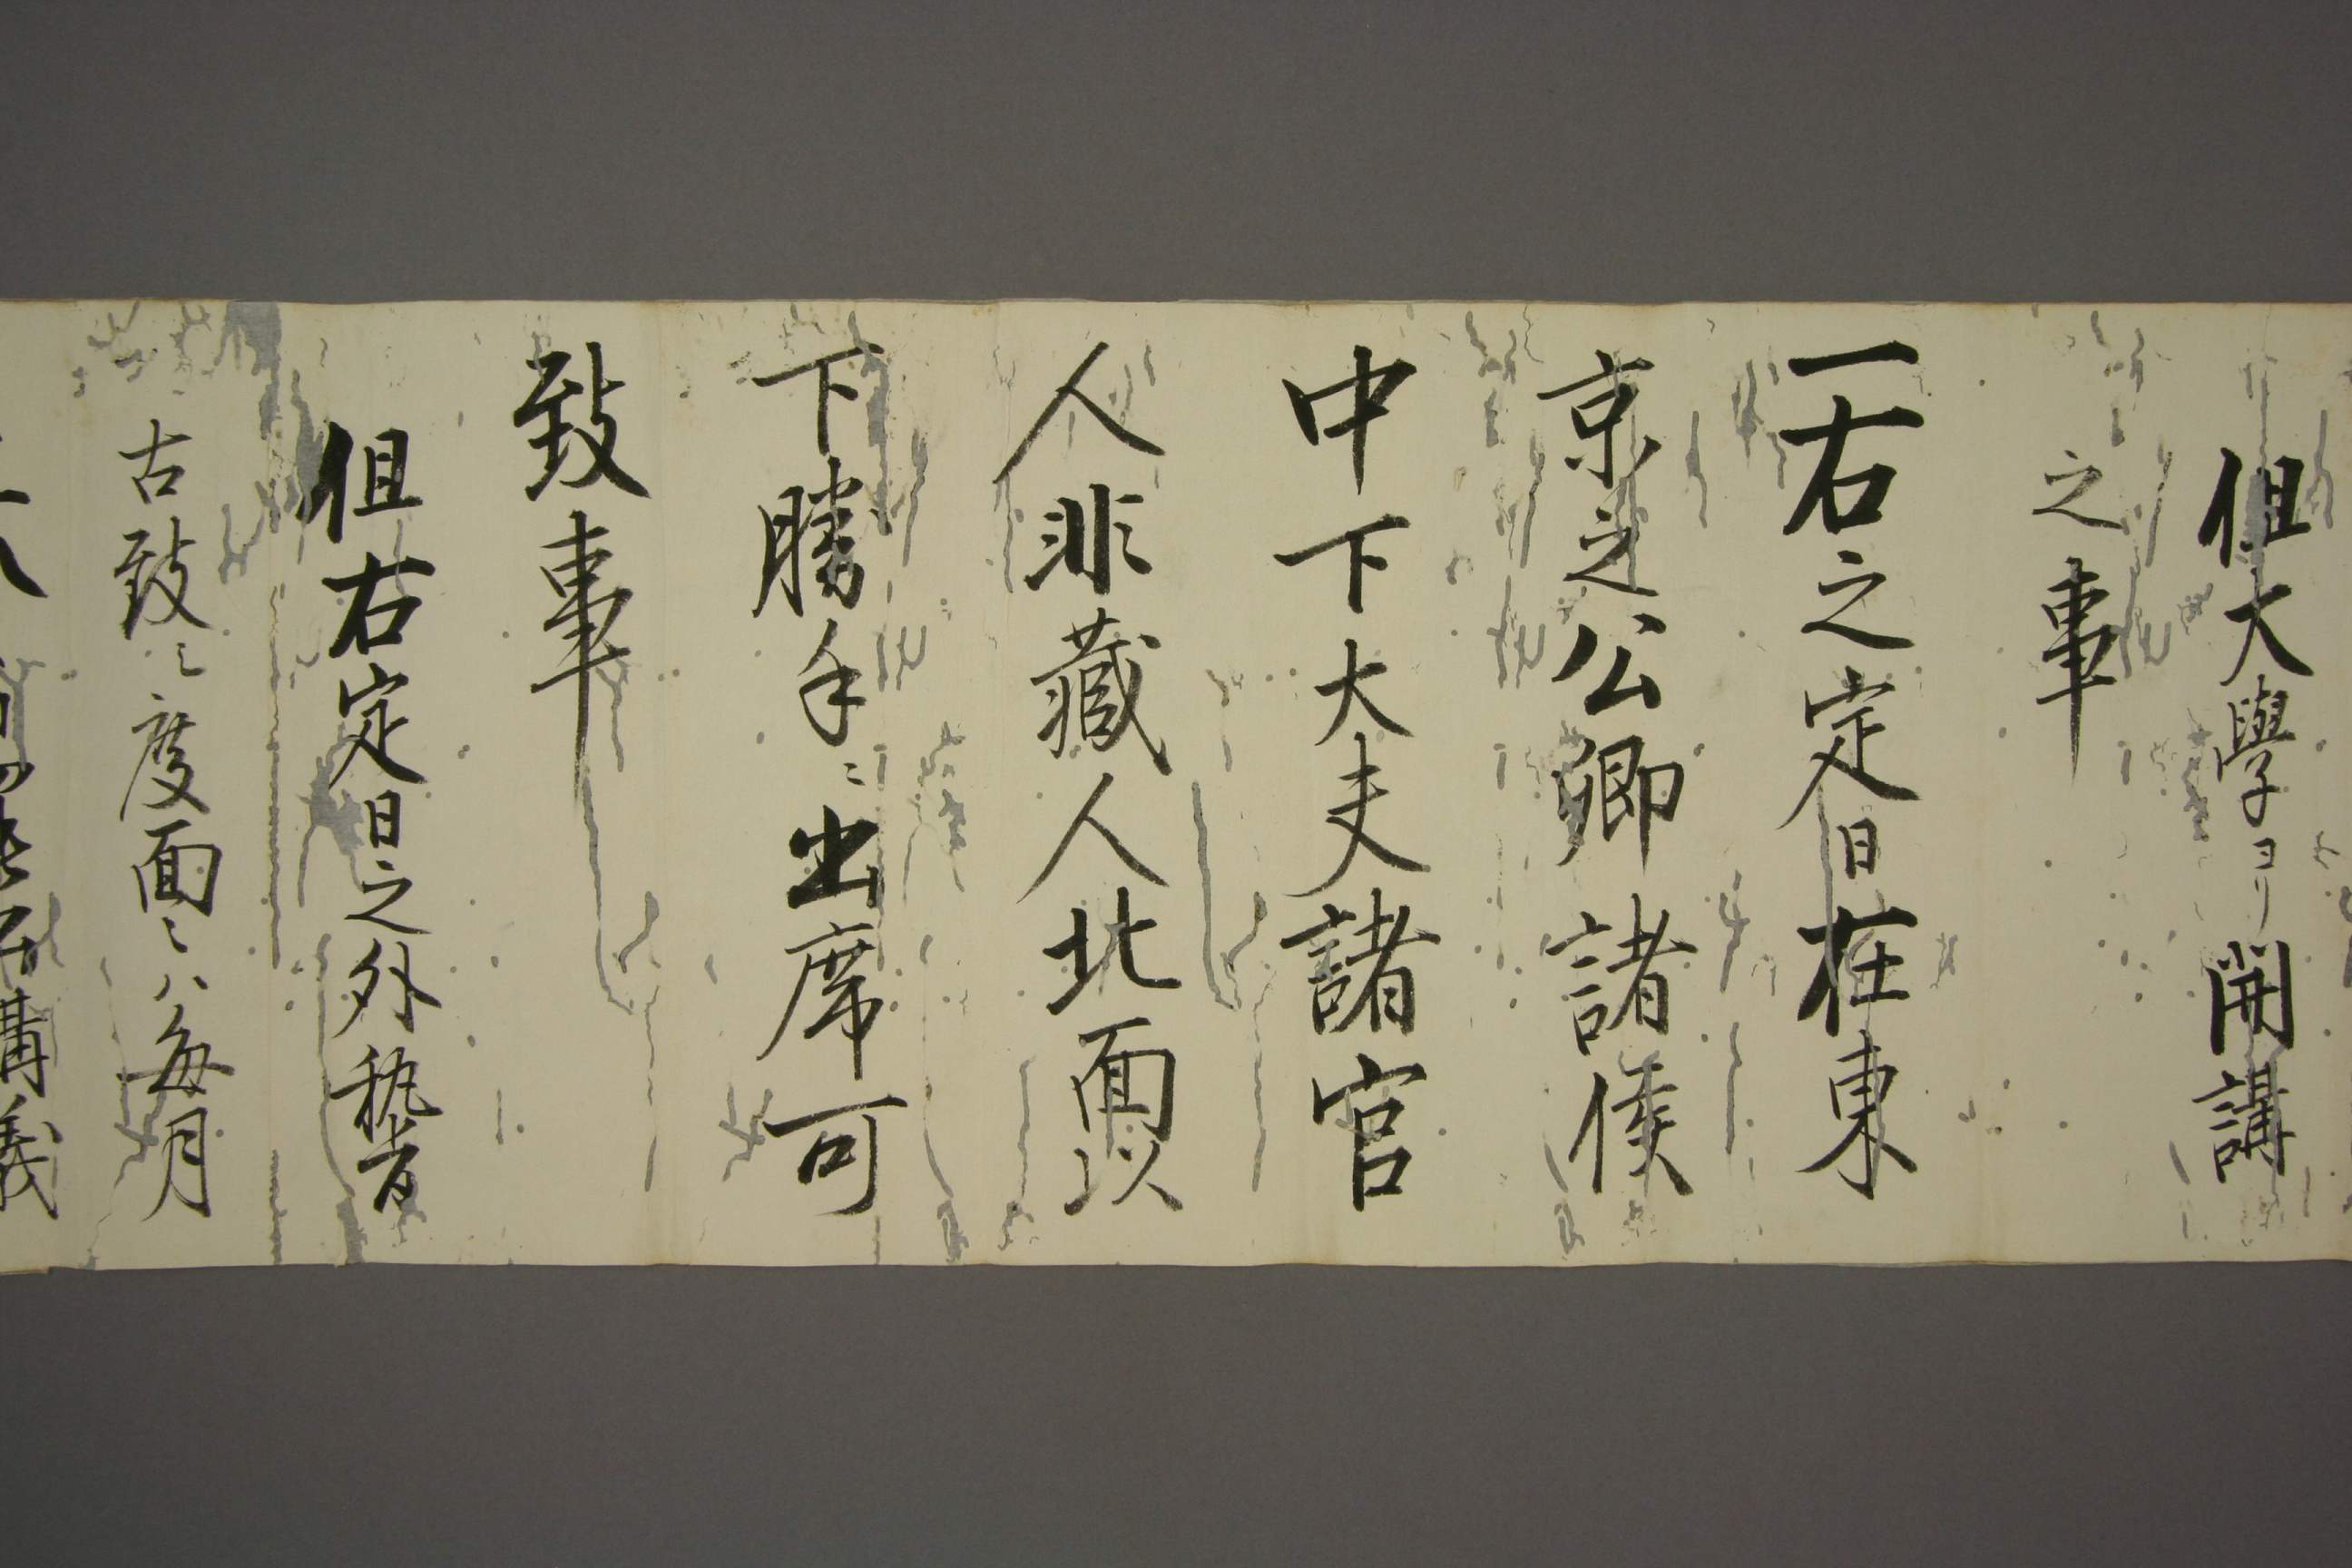 但大學ヨリ開講
之事
一右之定日在東
京之公卿諸侯
中下大夫諸官
人非藏人北面以
下勝手ニ出席可
致事
但右定日之外稽
古致シ度面々ハ每月
講義